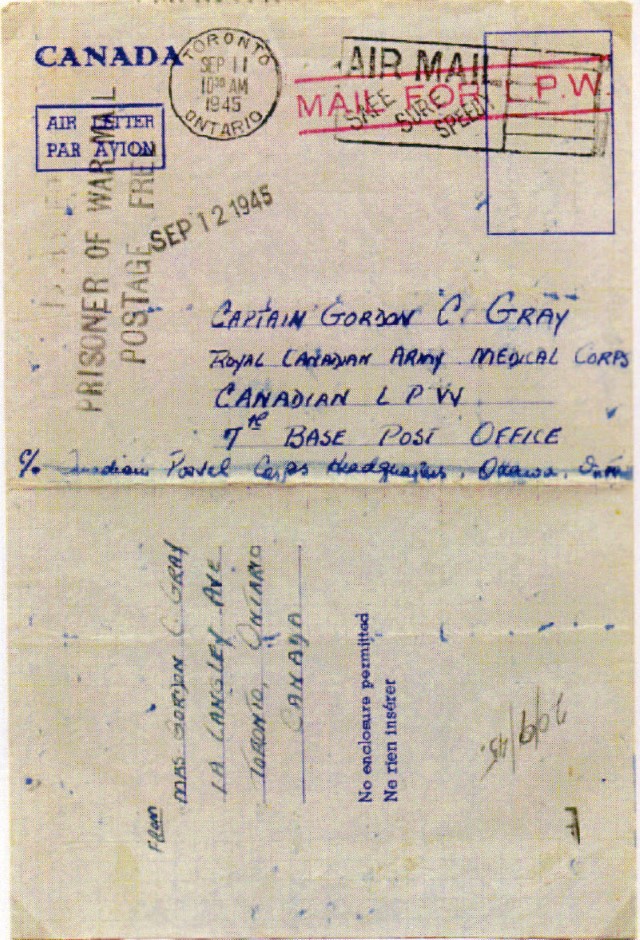 CANADA
TORONTO
SEP 11
10 30 AM
1945
ONTARIO
AIR MAIL
SAFE SURE SPEEDY
MAIL FOR L.P.W.
AIR LETTER
PAR AVION
PRISONER OF WAR MAIL
POSTAGE FREE
SEP 12 1945
CAPTAIN GORDON C. GRAY
ROYAL CANADIAN ARMY MEDICAL CORPS
CANADIAN L P W
7TH BASE POST OFFICE
c/o Canadian Postal Corps Headquarters, Ottawa, Ont.
From
MRS GORDON C GRAY
LANGLEY AVE
TORONTO, ONTARIO
CANADA
No enclosure permitted
No rien insérer